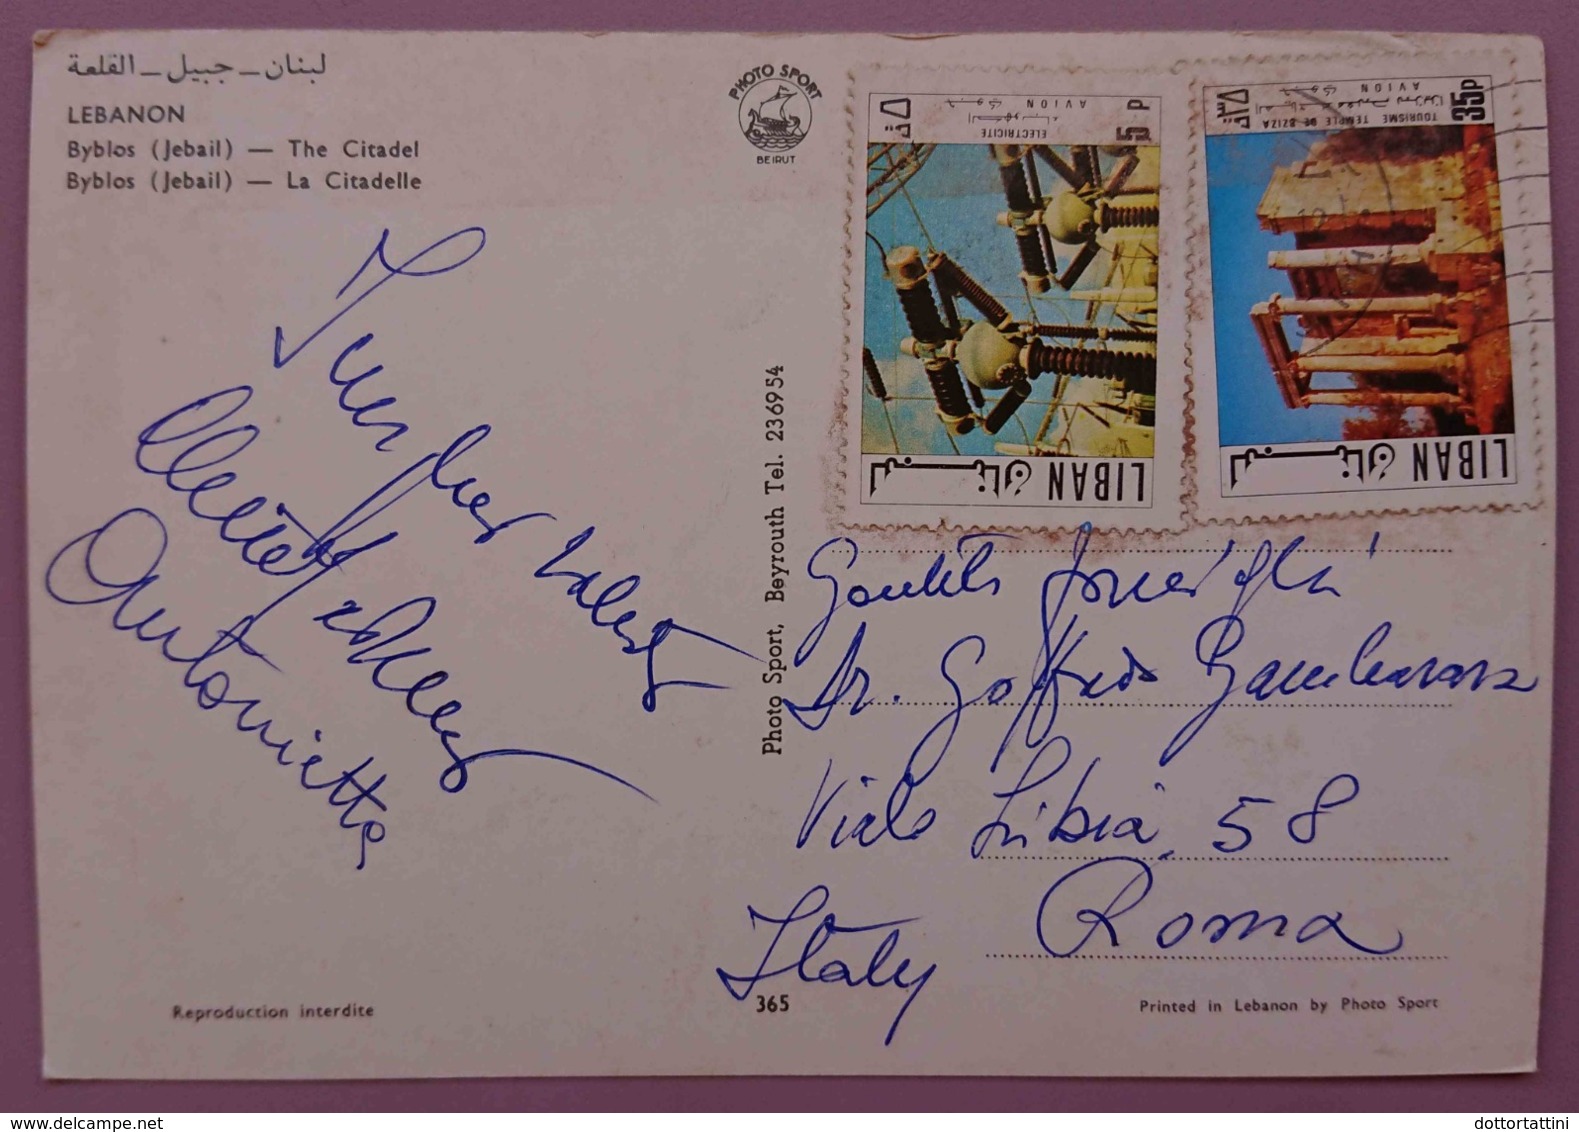 لبنان – جبيل – القلعة
LEBANON
Byblos (Jebail) — The Citadel
Byblos (Jebail) — La Citadelle
PHOTO SPORT
BEIRUT
5 P
ELECTRICITE
AVION
LIBAN لبنان
35P
TOURISME TEMPLE DE BZIZA
AVION
LIBAN لبنان
Antonietta
Photo Sport, Beyrouth Tel. 236954
Dr. Goffredo
Viale Libia, 58
Roma
Italy
Reproduction interdite
365
Printed in Lebanon by Photo Sport
dottortattini